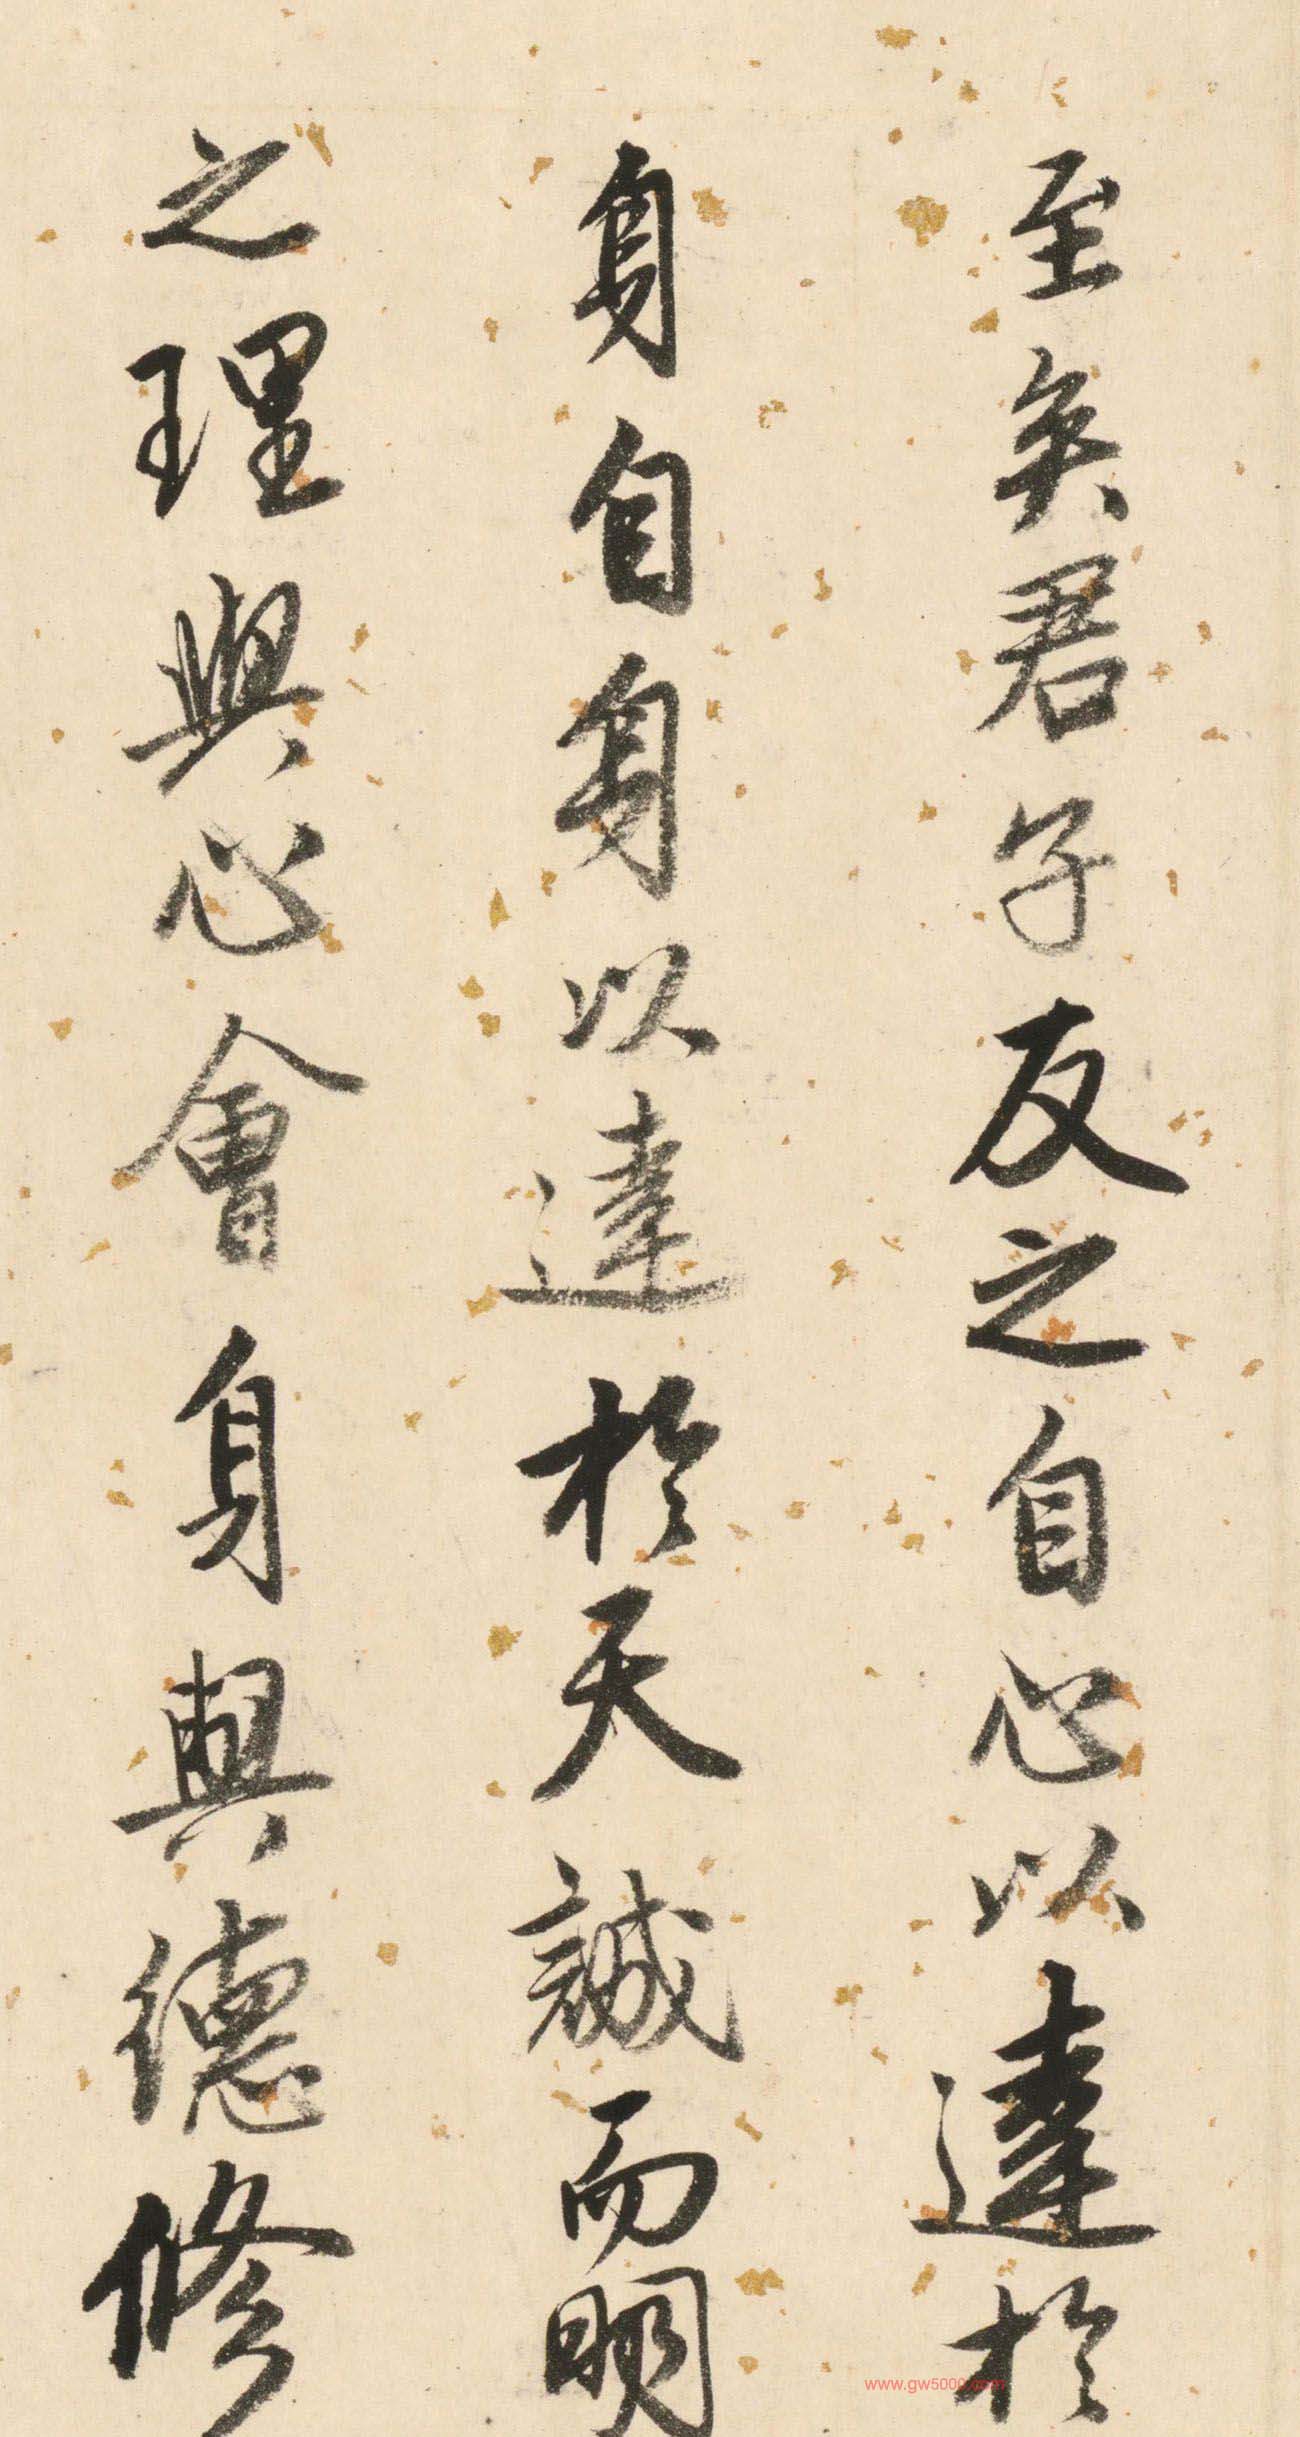 至矣君子反之自心以達於
身自身以達於天誠而明
之理與心會身與德修
www.gw5000.com